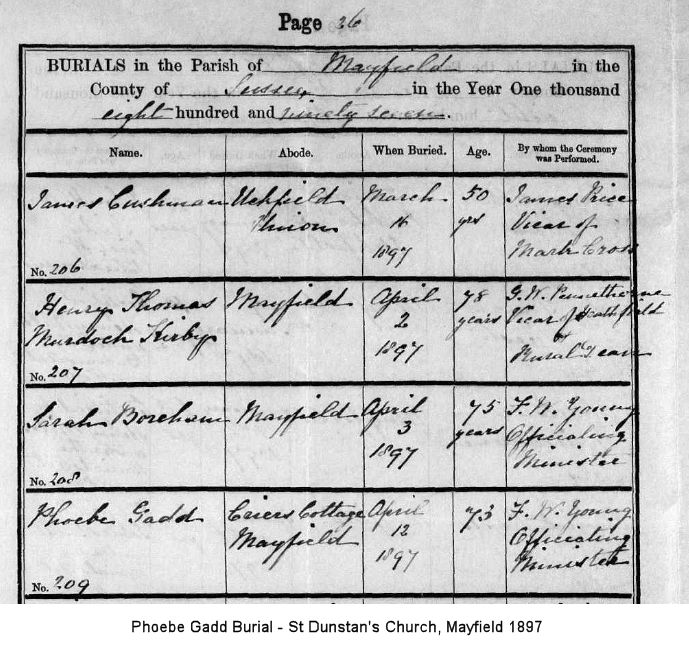 Page 26
BURIALS in the Parish of Mayfield in the
County of Sussex in the Year One thousand
eight hundred and ninety seven.
Name. Abode. When Buried. Age. By whom the Ceremony was Performed.
James Cushman
No. 206
Uckfield
Union
March
16
1897
50
yrs
James Price
Vicar of
Mark Cross
Henry Thomas
Murdoch Kirby
No. 207
Mayfield
April
2
1897
78
years
G. W. Pennethorne
Vicar of Heathfield
Rural Dean
Sarah Boreham
No. 208
Mayfield
April
3
1897
75
years
F. W. Young
Officiating
Minister
Phoebe Gadd
No. 209
Criers Cottage
Mayfield
April
12
1897
73
F. W. Young
Officiating
Minister
Phoebe Gadd Burial - St Dunstan's Church, Mayfield 1897